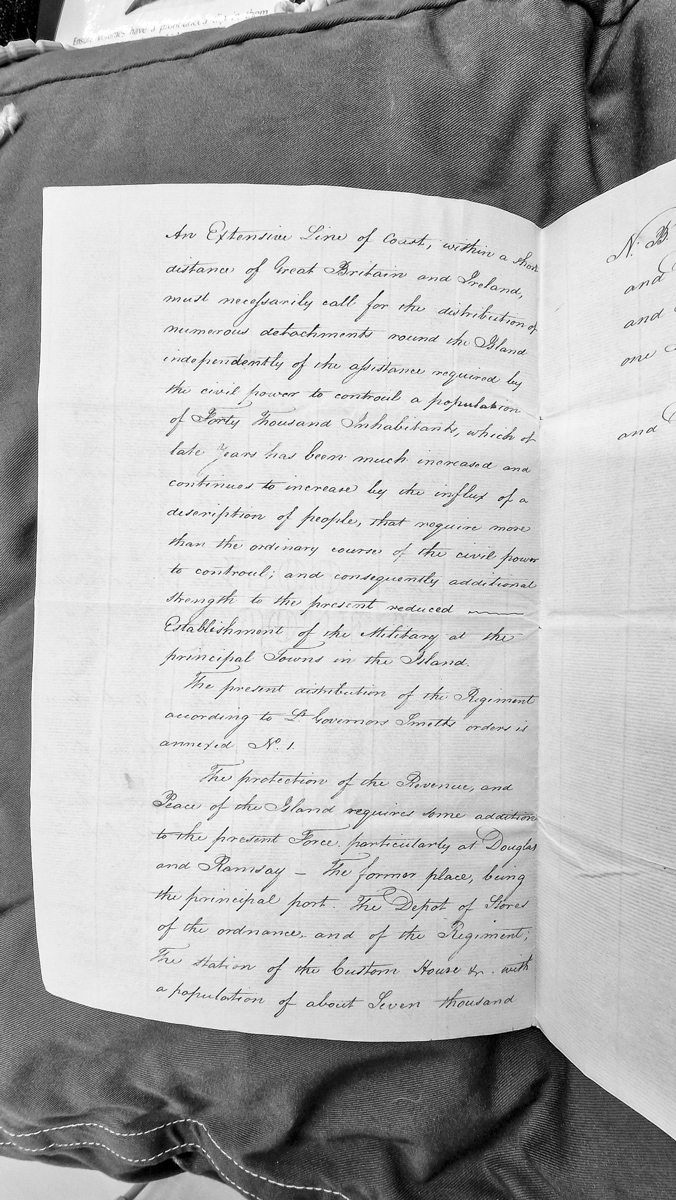 Ensure
have a pronounced
them
An Extensive Line of Coast, within a short
distance of Great Britain and Ireland,
must necessarily call for the distribution of
numerous detachments round the Island
independently of the assistance required by
the civil power to controul a population
of Forty Thousand Inhabitants, which of
late Years has been much increased and
continues to increase by the influx of a
description of people, that require more
than the ordinary course of the civil power
to controul; and consequently additional
strength to the present reduced
Establishment of the Military at the
principal Towns in the Island.
The present distribution of the Regiment
according to Lt Governors Smelts orders is
annexed No. 1.
The protection of the Revenue, and
Peace of the Island requires some addition
to the present Force, particularly at Douglas
and Ramsay – The former place, being
the principal port. The Depot of Stores
of the ordnance, and of the Regiment;
The station of the Custom House &c. with
a population of about Seven thousand
N. B.
and
and
one
and